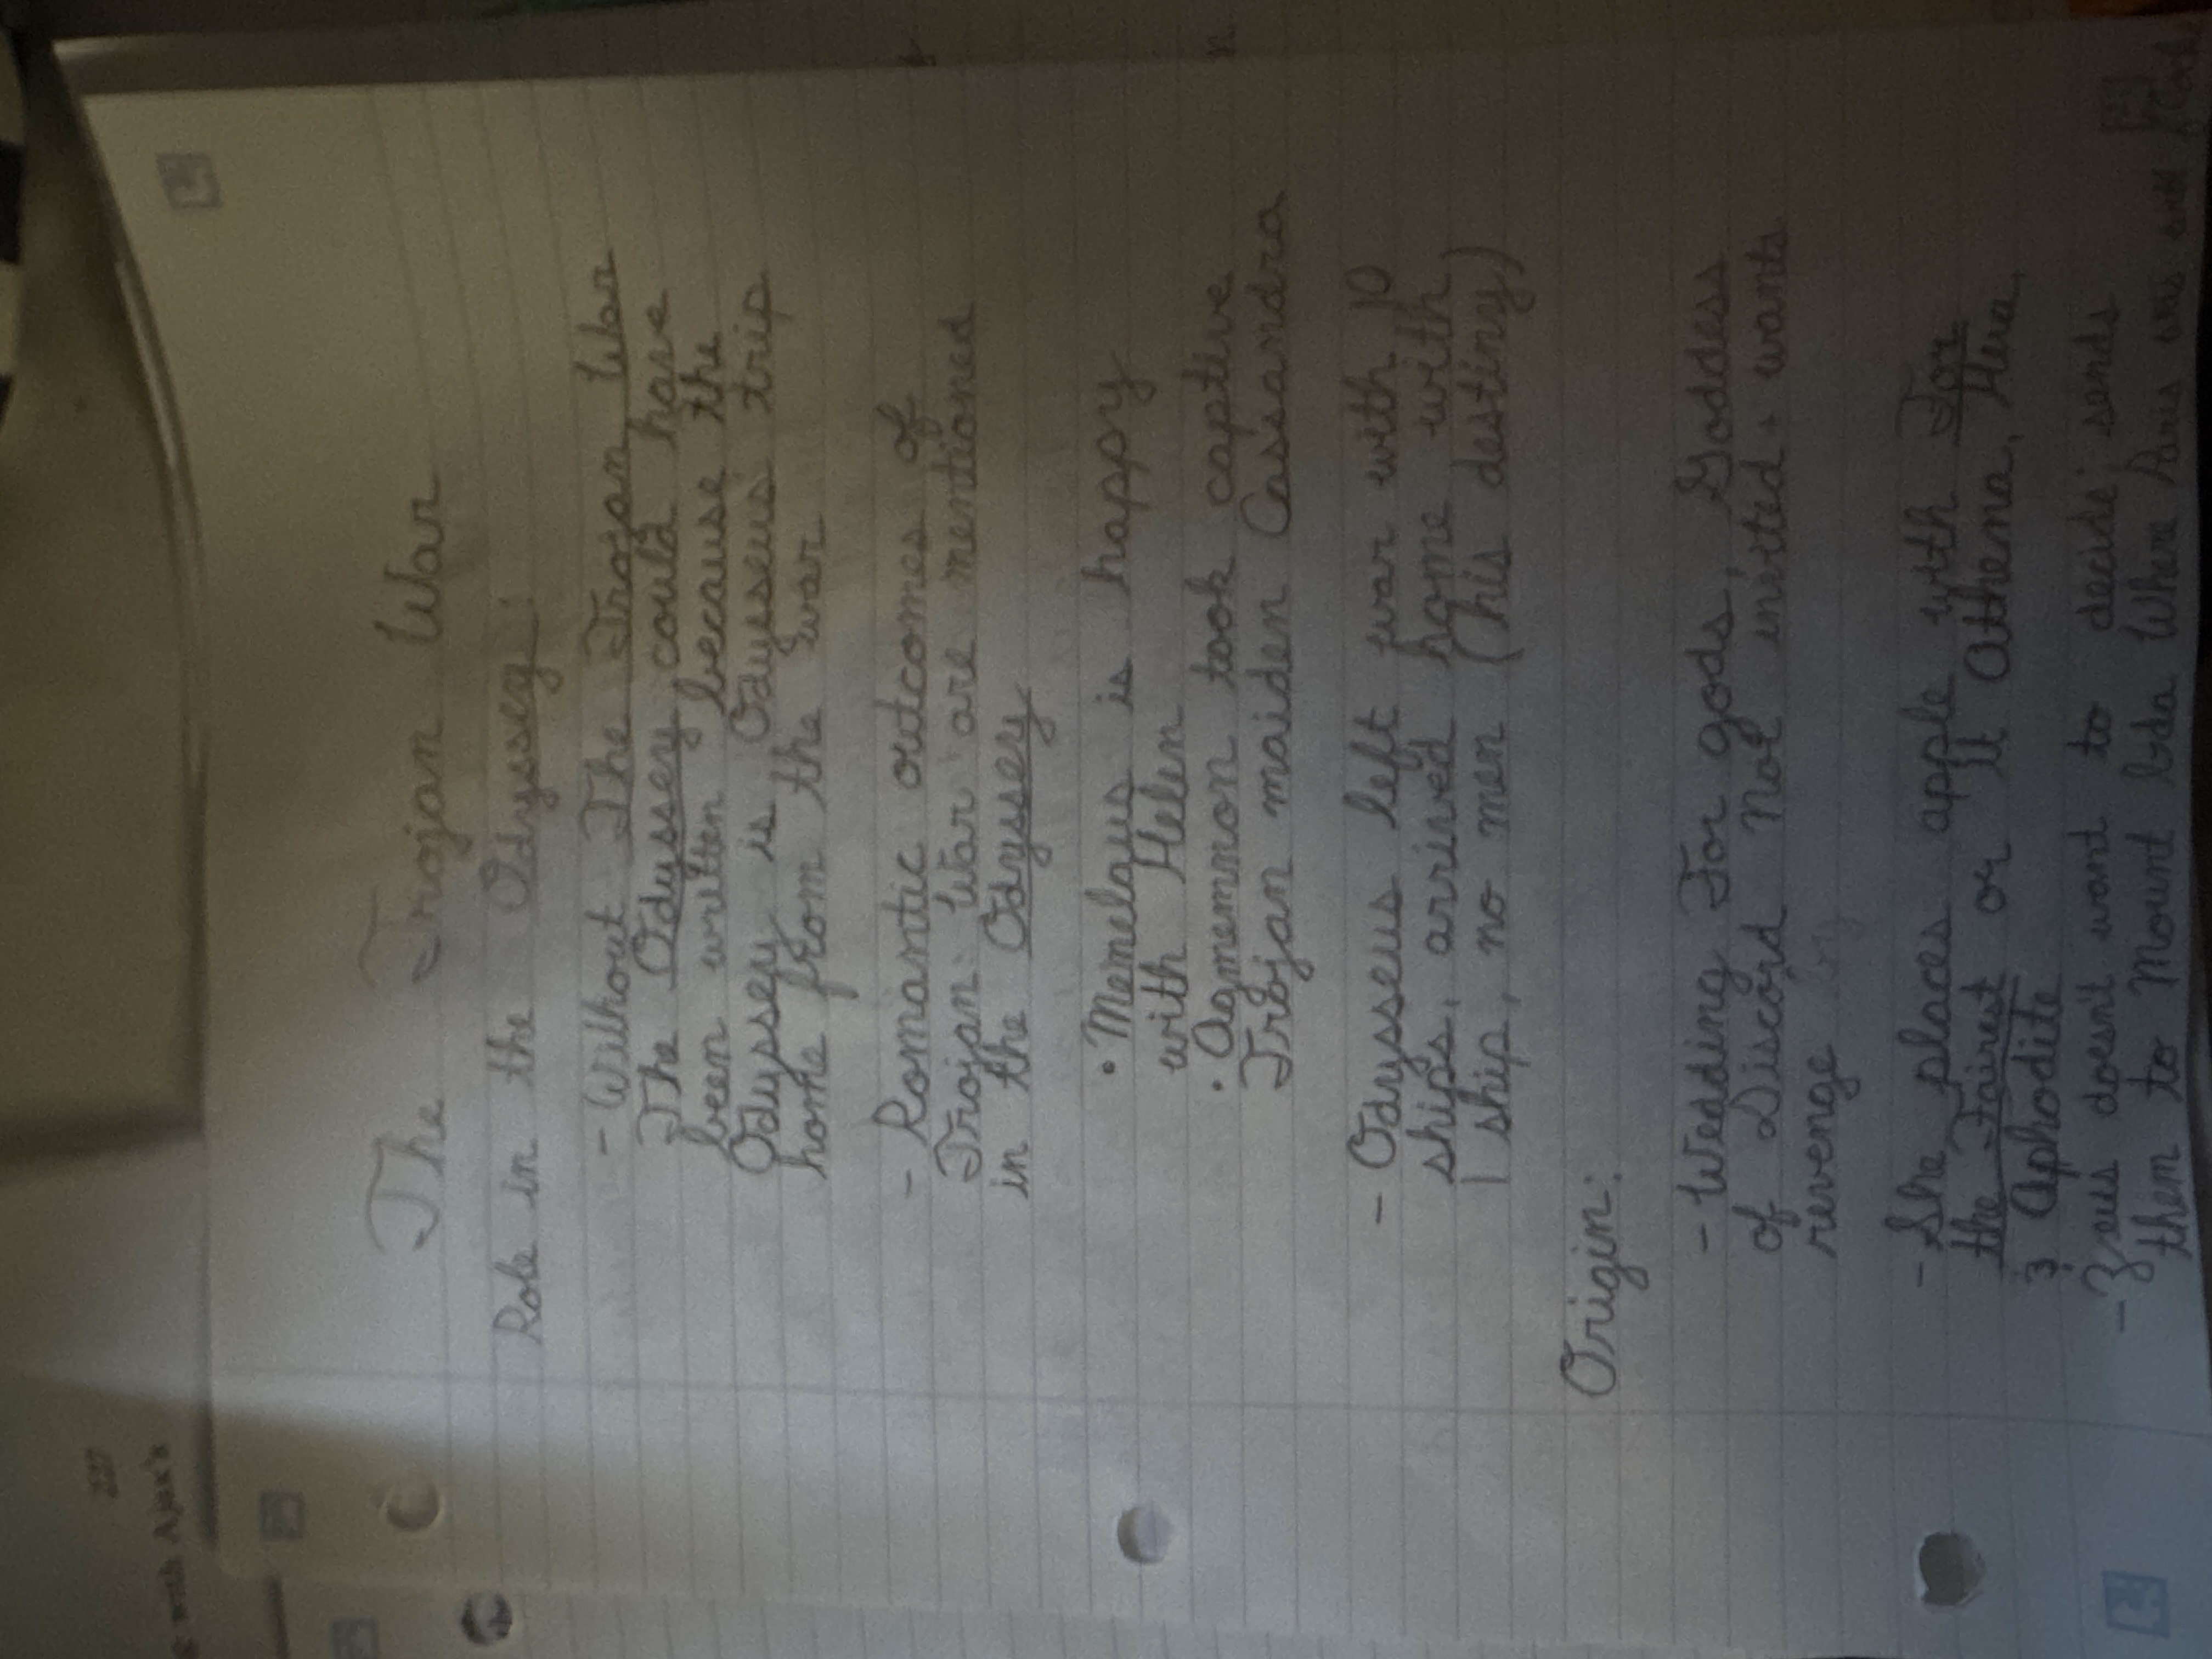 227
with Ajax's
The Trojan War
Role in the Odyssey:
- Without The Trojan War
The Odyssey could have
been written because the
Odyssey is Odysseus' trip
home from the war
- Romantic outcomes of
Trojan War are mentioned
in the Odyssey
• Menelaus is happy
with Helen
• Agmemnon took captive
Trojan maiden Cassandra
- Odysseus left war with 10
ships, arrived home with
1 ship, no men (his destiny)
Origin:
- Wedding For gods, Goddess
of Discord Not invited + wants
revenge
- She places apple with For
the Fairest or It Athena, Hera,
& Aphodite
- Zeus doesn't want to decide; sends
them to Mount Ida Where Paris